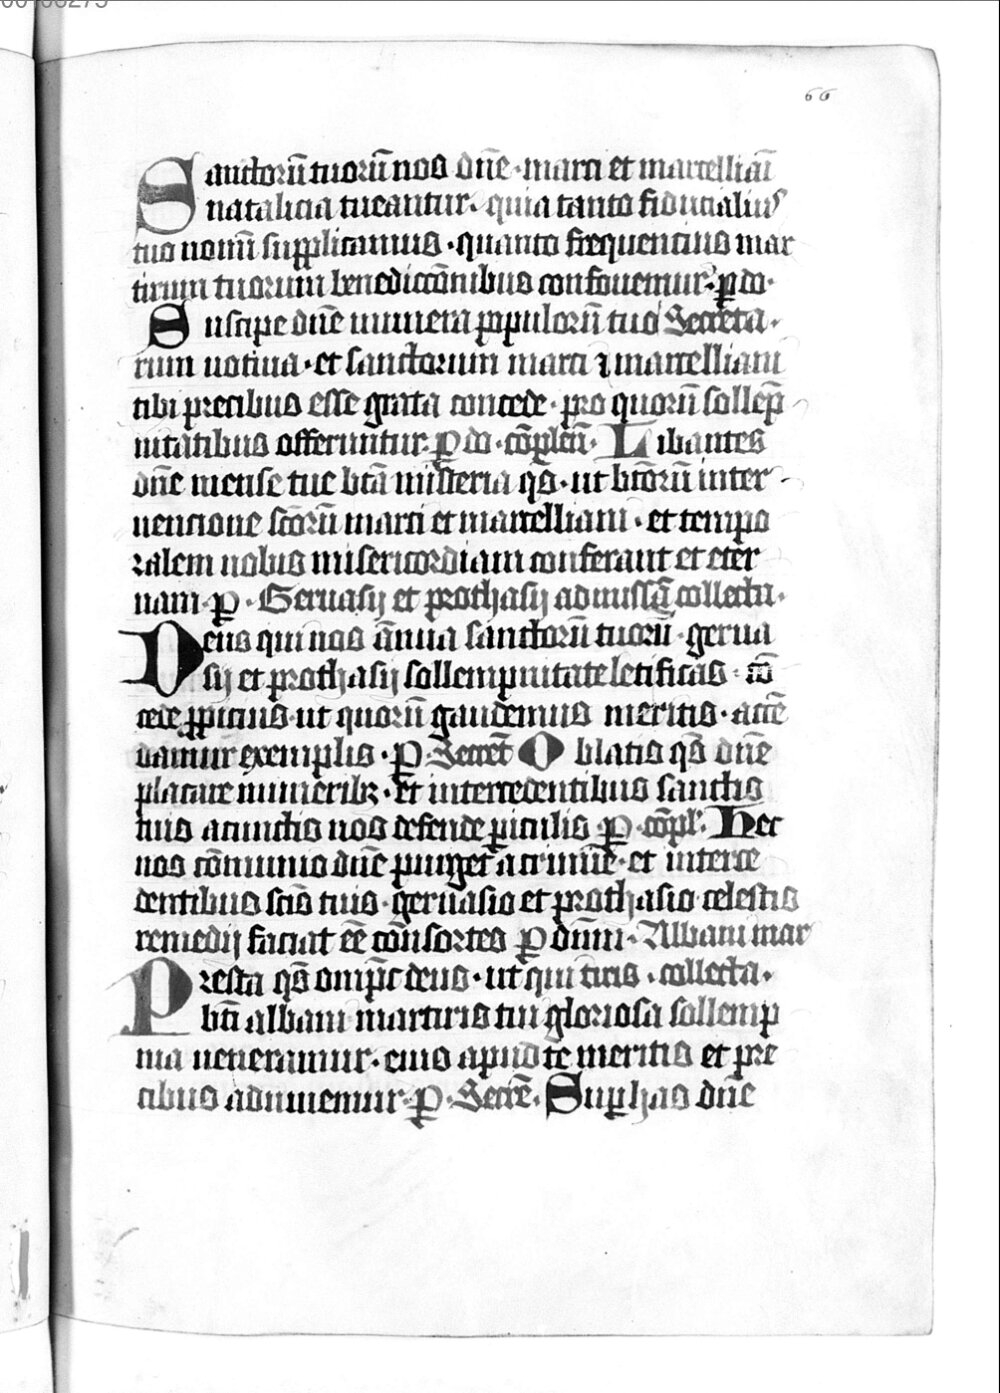 66
Sanctorū tuorū nos dn̄e · marci et marcelliaī
natalicia tueantur · quia tanto fiducialius
tuo nomī supplicamus · quanto frequencius mar
tirum tuorum benediccōnibus confouemur · p do ·
Suscipe dn̄e munera populorū tuoꝝ Secreta ·
rum uotiua · et sanctorum marci ⁊ marcelliani
tibi precibus esse grata concede · pro quorū sollep̄
nitatibus offeruntur · p do · cōplen̄ · Libantes
dn̄e mense tue btā misteria qs̄ · ut btōrū inter
uencione scōrū marci et marcelliani · et tempo
ralem nobis misericordiam conferant et eter
nam · p · Geruasij et prothasij ad missā collecta ·
Deus qui nos ānua sanctorū tuorū · gerua
sij et prothasij sollempnitate letificas · cō
cede ꝓpicius · ut quorū gaudemus meritis · accē
damur exemplis · p · Secret̄ Oblatis qs̄ dn̄e
placare muneribꝫ · et intercedentibus sanctis
tuis a cunctis nos defende piculis · p · cōpl · Hec
nos cōmunio dn̄e purget a crimīe · et interce
dentibus scīs tuis · geruasio et prothasio celestis
remedij faciat eē cōnsortes p dūm · Albani mar
Presta qs̄ omp̄c deus · ut qui tiris · collecta ·
bt̄i albani martiris tui gloriosa sollemp
nia ueneramur · eius apud te meritis et pre
cibus adiuuemur · p · Secrē · Suꝑ has dn̄e